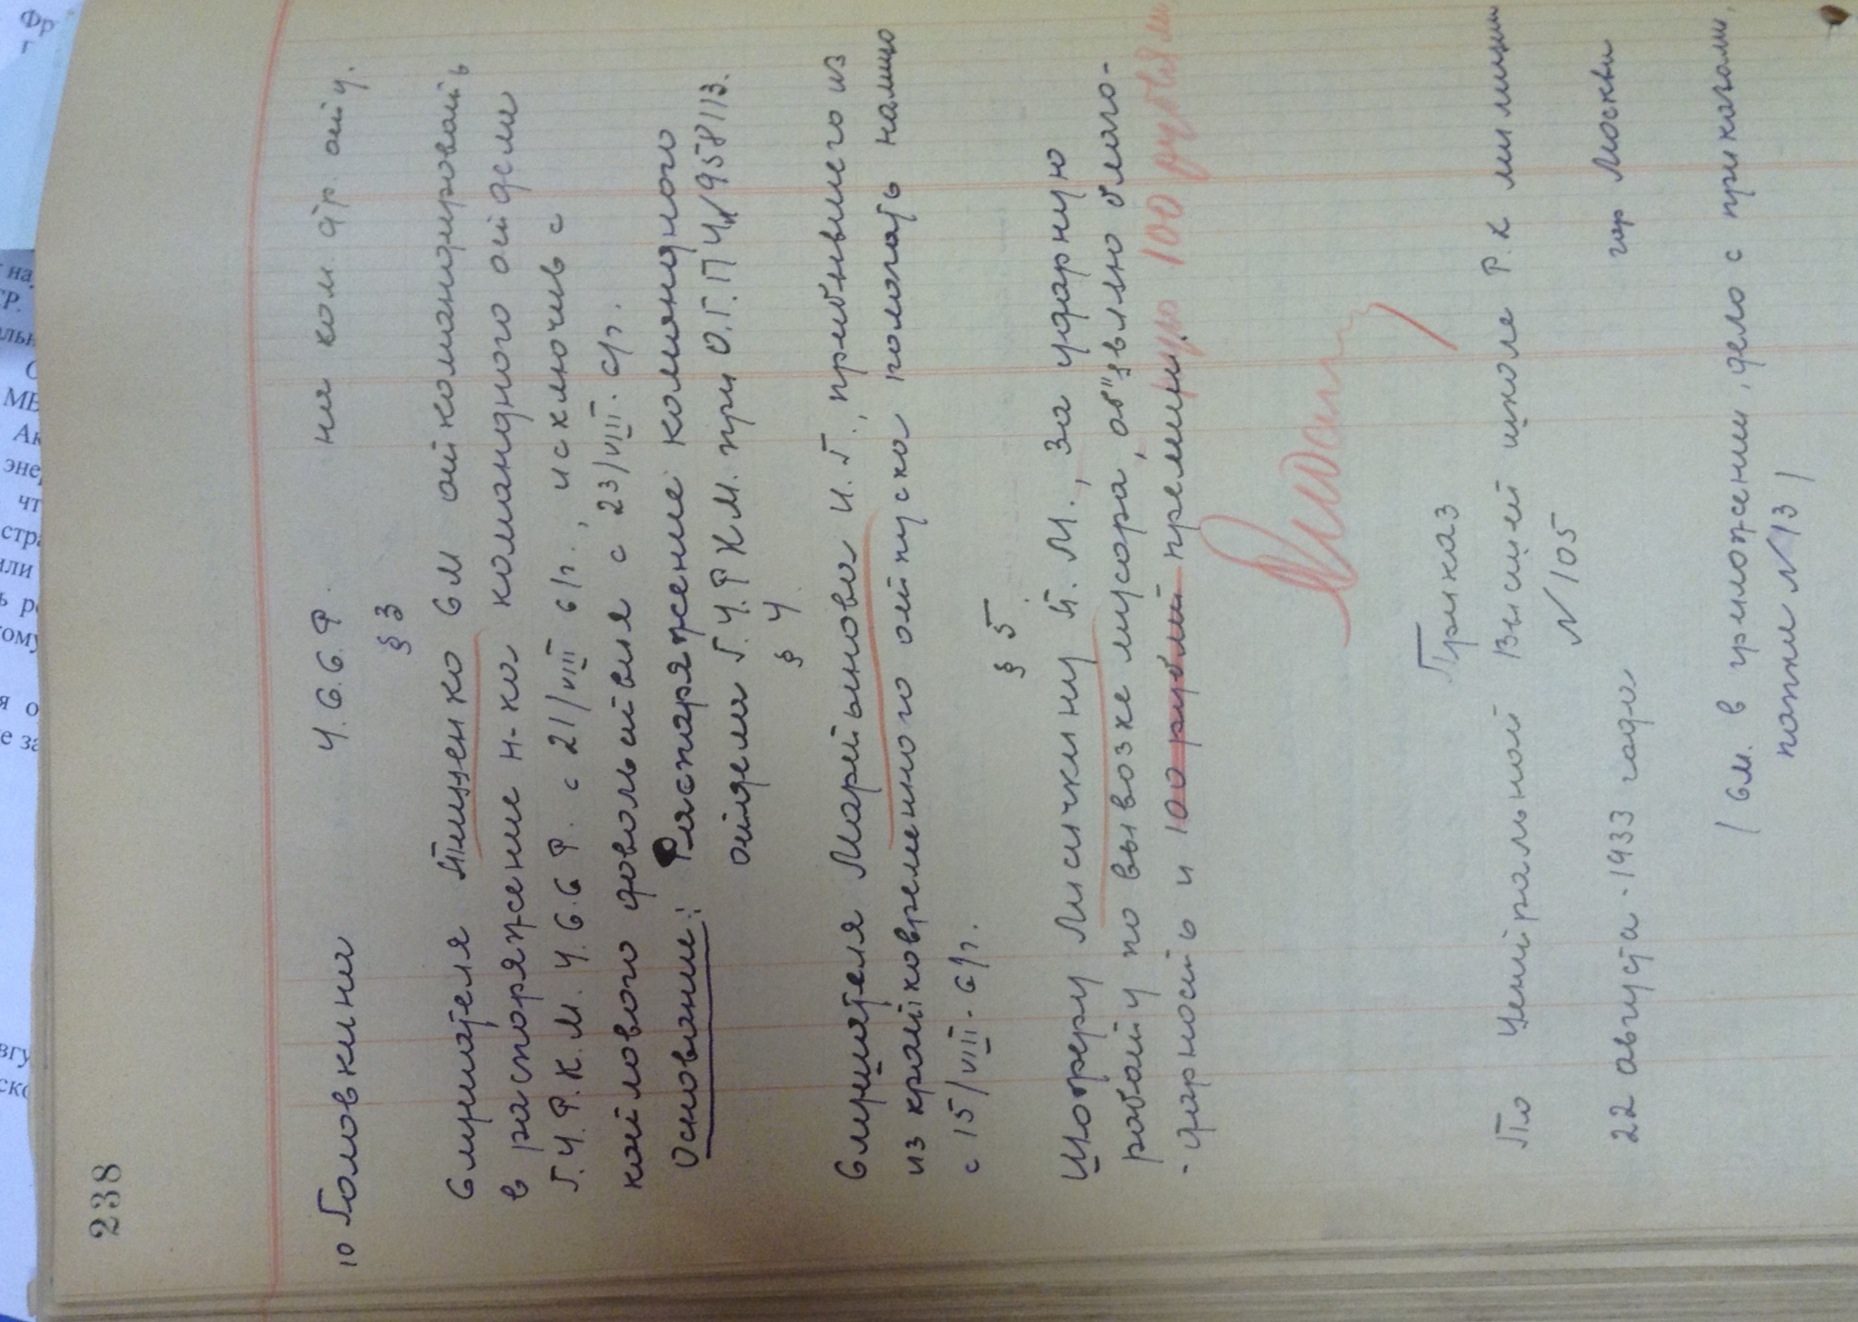 238
10 Головкина У.С.С.Р. на ком. стр. от У.
§ 3
Слушателя Тищенко С М откомандировать
в распоряжение н-ка командного отдела
Г.У.Р.К.М. У.С.С.Р. с 21/VIII с/г., исключив с
котлового довольствия с 23/VIII. с/г.
Основание: Распоряжение командного
отдела Г.У.Р К М. при О.Г.П У №958113.
§ 4.
Слушателя Мартынова И. Г., прибывшего из
из кратковременного отпуска полагать налицо
с 15/VIII- с/г.
§ 5
Шоферу Лисичкину Т. М., за ударную
работу по вывозке мусора, об"явлю благо-
-дарность и 100 рублей премии.
100 рублям
Приказ
По Центральной Высшей школе Р.К милиции
№ 105
22 августа - 1933 года гор Москва
/ см. в приложении, дело с приказами,
папки №13 /